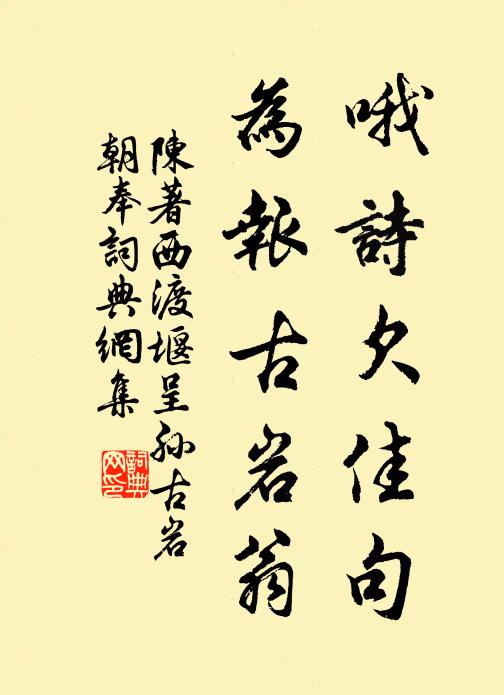 哦詩欠佳句
為報古岩翁
陳著西渡堰呈孫古岩
朝奉詞典網集
詞典網印